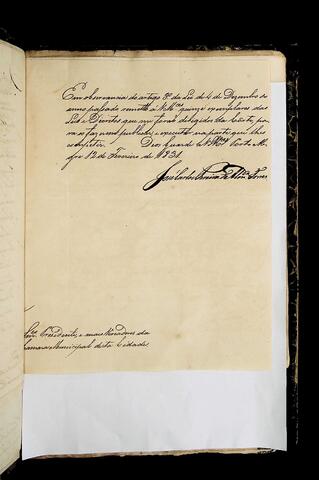 Em observancia do artigo 8º da Lei de 4 de Dezembro do
anno passado remetto á V. Mces quinze exemplares das
Leis e Decretos que me forão dirigidos da Côrte, pa-
ra os fazerem publicar, e executar na parte que lhes
competir. Deos Guarde a V. Mces Porto Ale-
gre 12 de Fevereiro de 1831.
José Carlos Pereira de Torres
Presidente, e mais Vereadores da
Camara Municipal desta Cidade